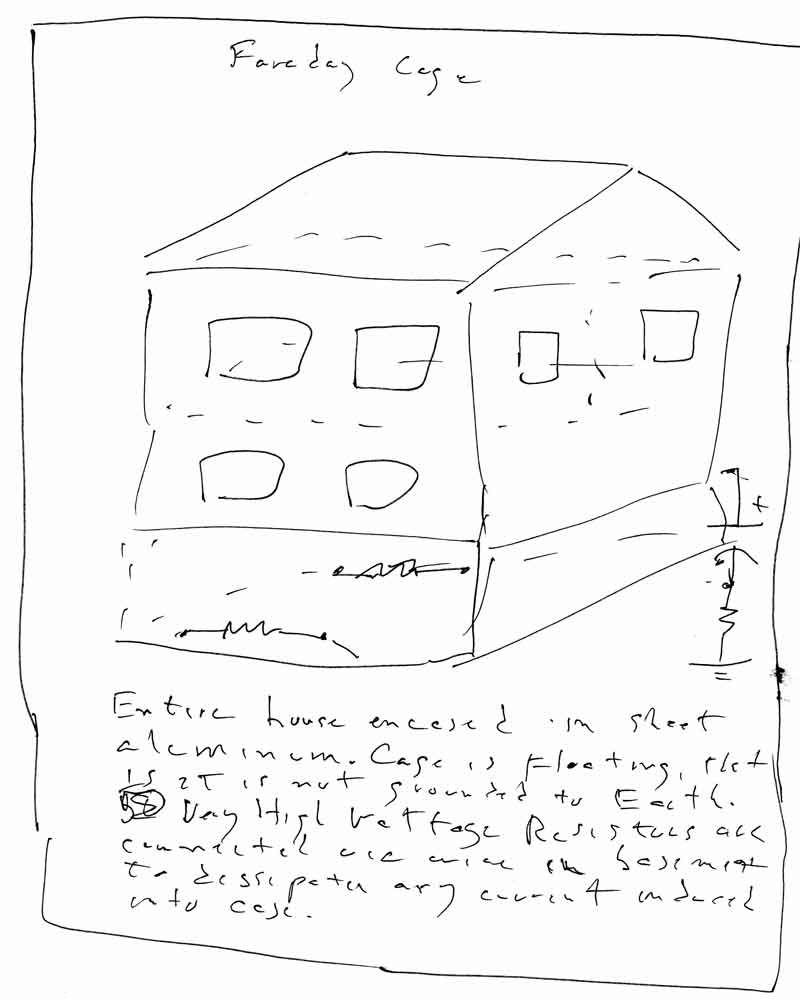 Faraday Cage
+
Entire house encased in sheet
aluminum. Cage is Floating, that
is it is not grounded to Earth.
Very High Voltage Resistors are
connected via wire in basement
to dissipate any current induced
into cage.